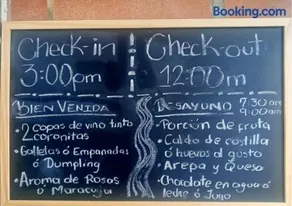 Booking.com
Check-in
3:00pm
BIEN VENIDA
• 2 copas de vino tinto
2 coronitas
• Galletas ó Empanadas
ó Dumpling
• Aroma de Rosas
ó Maracuya
Check-out
12:00m
DESAYUNO 7:30 am
9:00am
• Porción de fruta
• Caldo de costilla
ó huevos al gusto
• Arepa y Queso
• Chocolate en agua ó
leche ó Jugo